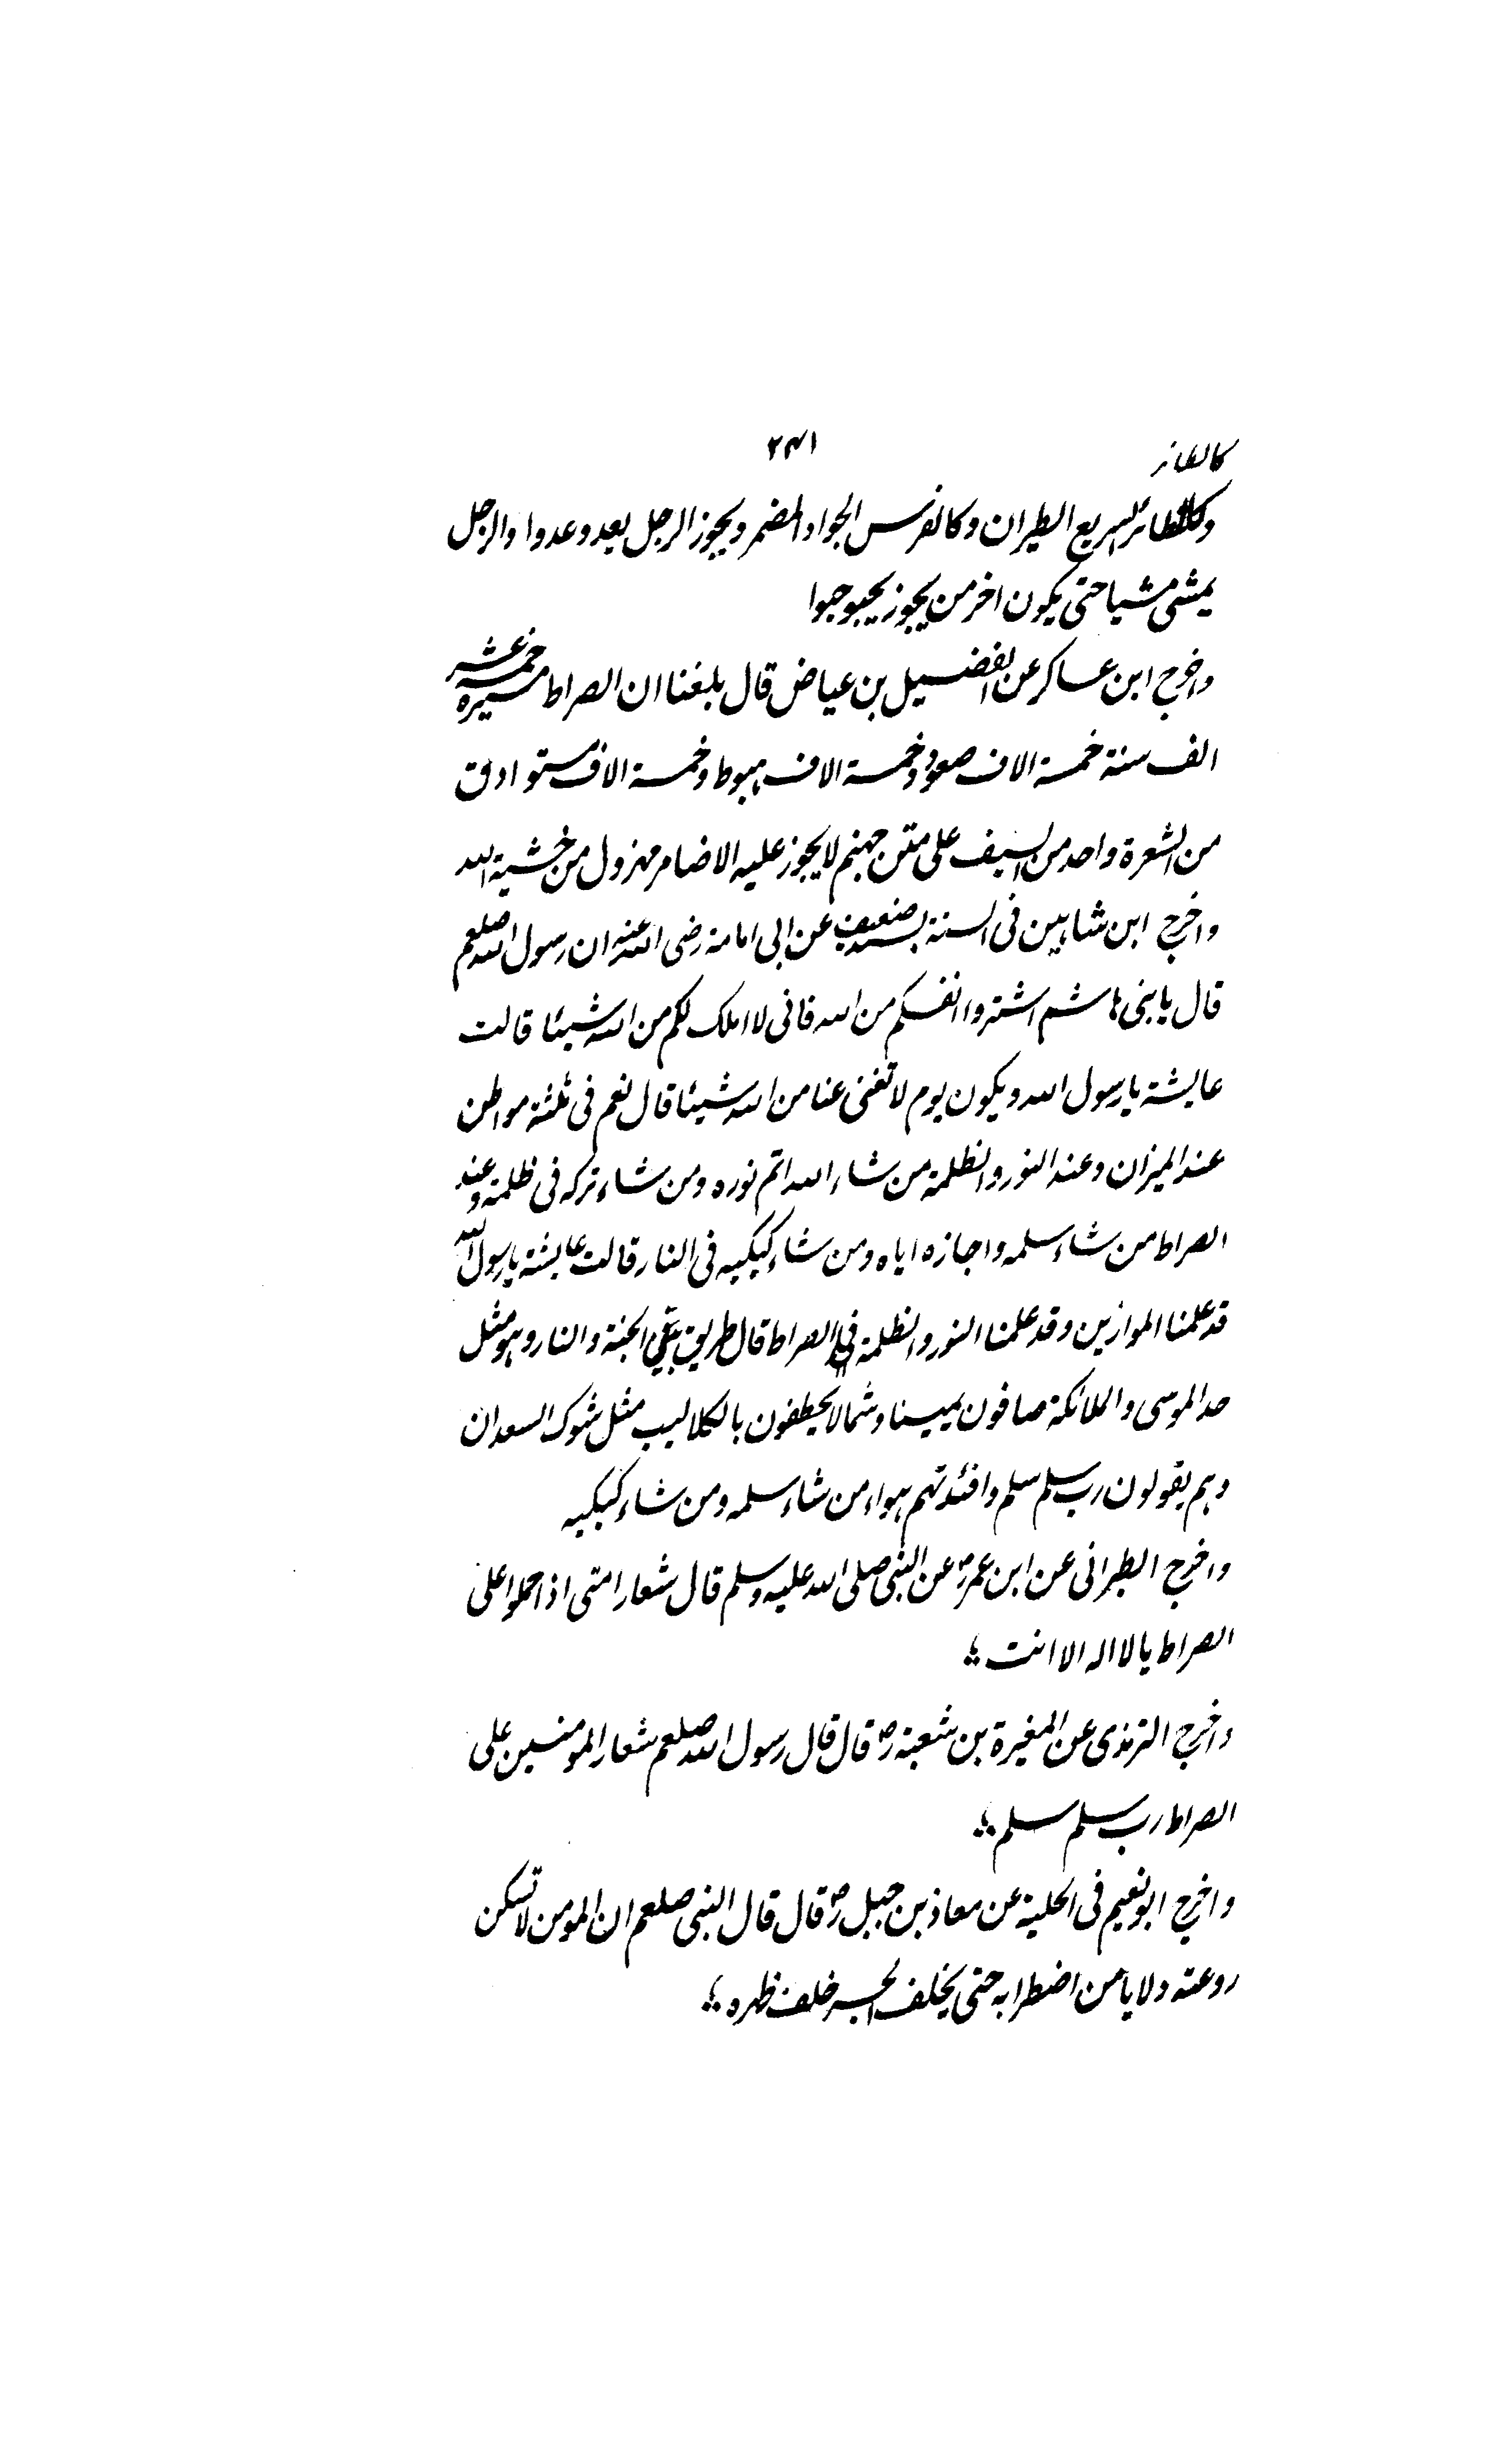 ۲۴۱
كالطائر
وكالطائر السريع الطيران وكالفرس الجواد المضمر ويجوز الرجل يعدو عدوا والرجل
يمشى مشيا حتى يكون اخر من يجوز يحبو حبوا
واخرج ابن عساكر عن الفضيل بن عياض قال بلغنا ان الصراط مسيرة خمسة عشر
الف سنة خمسة الاف صعود وخمسة الاف هبوط وخمسة الاف مستو ادق
من الشعرة واحد من السيف على متن جهنم لا يجوز عليه الا ضامر مهزول من خشية الله
واخرج ابن شاهين فى السنة بسند ضعيف عن ابى امامة رضى الله عنه ان رسول الله صلعم
قال يا بنى هاشم اشتروا انفسكم من الله فانى لا املك لكم من الله شيئا قالت
عايشة يا رسول الله ويكون يوم لا تغنى عنا من الله شيئا قال نعم فى ثلثة مواطن
عند الميزان وعند النور والظلمة من شاء الله اتم نوره ومن شاء تركه فى ظلمة وعند
الصراط من شاء سلمه واجازه اياه ومن شاء كبكبه فى النار قالت عايشة يا رسول الله
قد علمنا الموازين وقد علمنا النور والظلمة الصراط قال طريق بين الجنة والنار وهو مثل
حد الموسى والملائكة صافون يمينا وشمالا يخطفون بالكلاليب مثل شوك السعدان
وهم يقولون رب سلم سلم وافئدتهم هواء من شاء سلمه ومن شاء كبكبه
واخرج الطبرانى عن ابن عمر رض عن النبى صلى الله عليه وسلم قال شعار امتى اذا حملوا على
الصراط يا لا اله الا انت
واخرج الترمذى عن المغيرة بن شعبة رض قال قال رسول الله صلعم شعار المومنين على
الصراط رب سلم سلم
واخرج ابو نعيم فى الحلية عن معاذ بن جبل رض قال قال النبى صلعم ان المومن لا تسكن
روعته ولا يامن اضطرابه حتى يخلف الجسر خلف ظهره